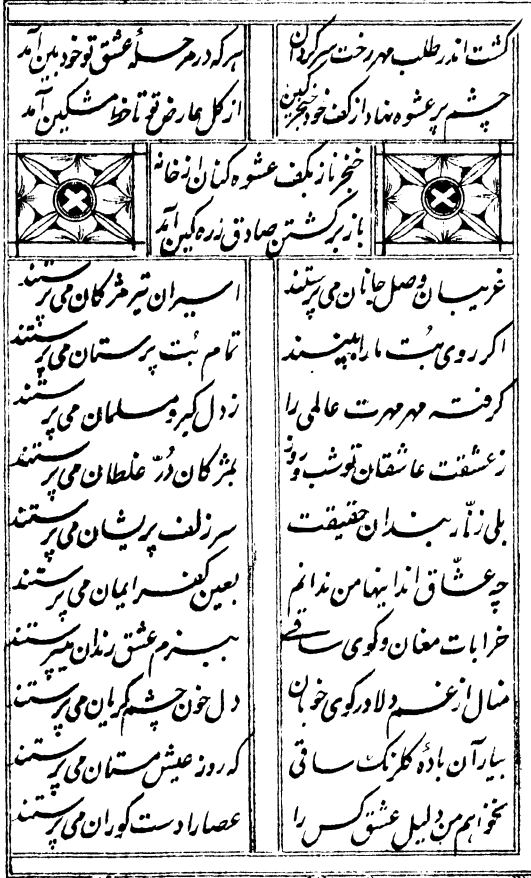 گشت اندر طلب مهر رخت سرگردان
هر که در مرحلهٔ عشق تو خود بین آمد
چشم پر عشوه نهاد از کف خود خنجر کین
از گل عارض تو تا خط مشکین آمد
خنجر ناز بکف عشوه کنان از خانه
باز بر کشتن صادق زره کین آمد
غریبان وصل جانان می پرستند
اسیران تیر مژکان می پرستند
اکر روی بت ما را ببینند
تمام بت پرستان می پرستند
گرفته مهر مهرت عالمی را
ز دل کبر و مسلمان می پرستند
ز عشقت عاشقان تو شب و روز
بمژکان درّ غلطان می پرستند
بلی زنّار بندان حقیقت
سر زلف پریشان می پرستند
چه عشّاق اند اینها من ندانم
بعین کفر ایمان می پرستند
خرابات مغان و کوی ساقی
ببزم عشق رندان میپرستند
منال از غم دلا در کوی خوبان
دل خون چشم کریان می پرستند
بیار آن بادهٔ کلرنک ساقی
که روز عیش مستان می پرستند
نخواهم من دلیل عشق کس را
عصا را دست کوران می پرستند